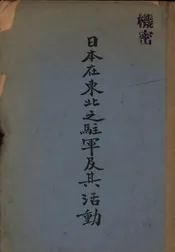 機密
日本在東北之駐軍及其活動